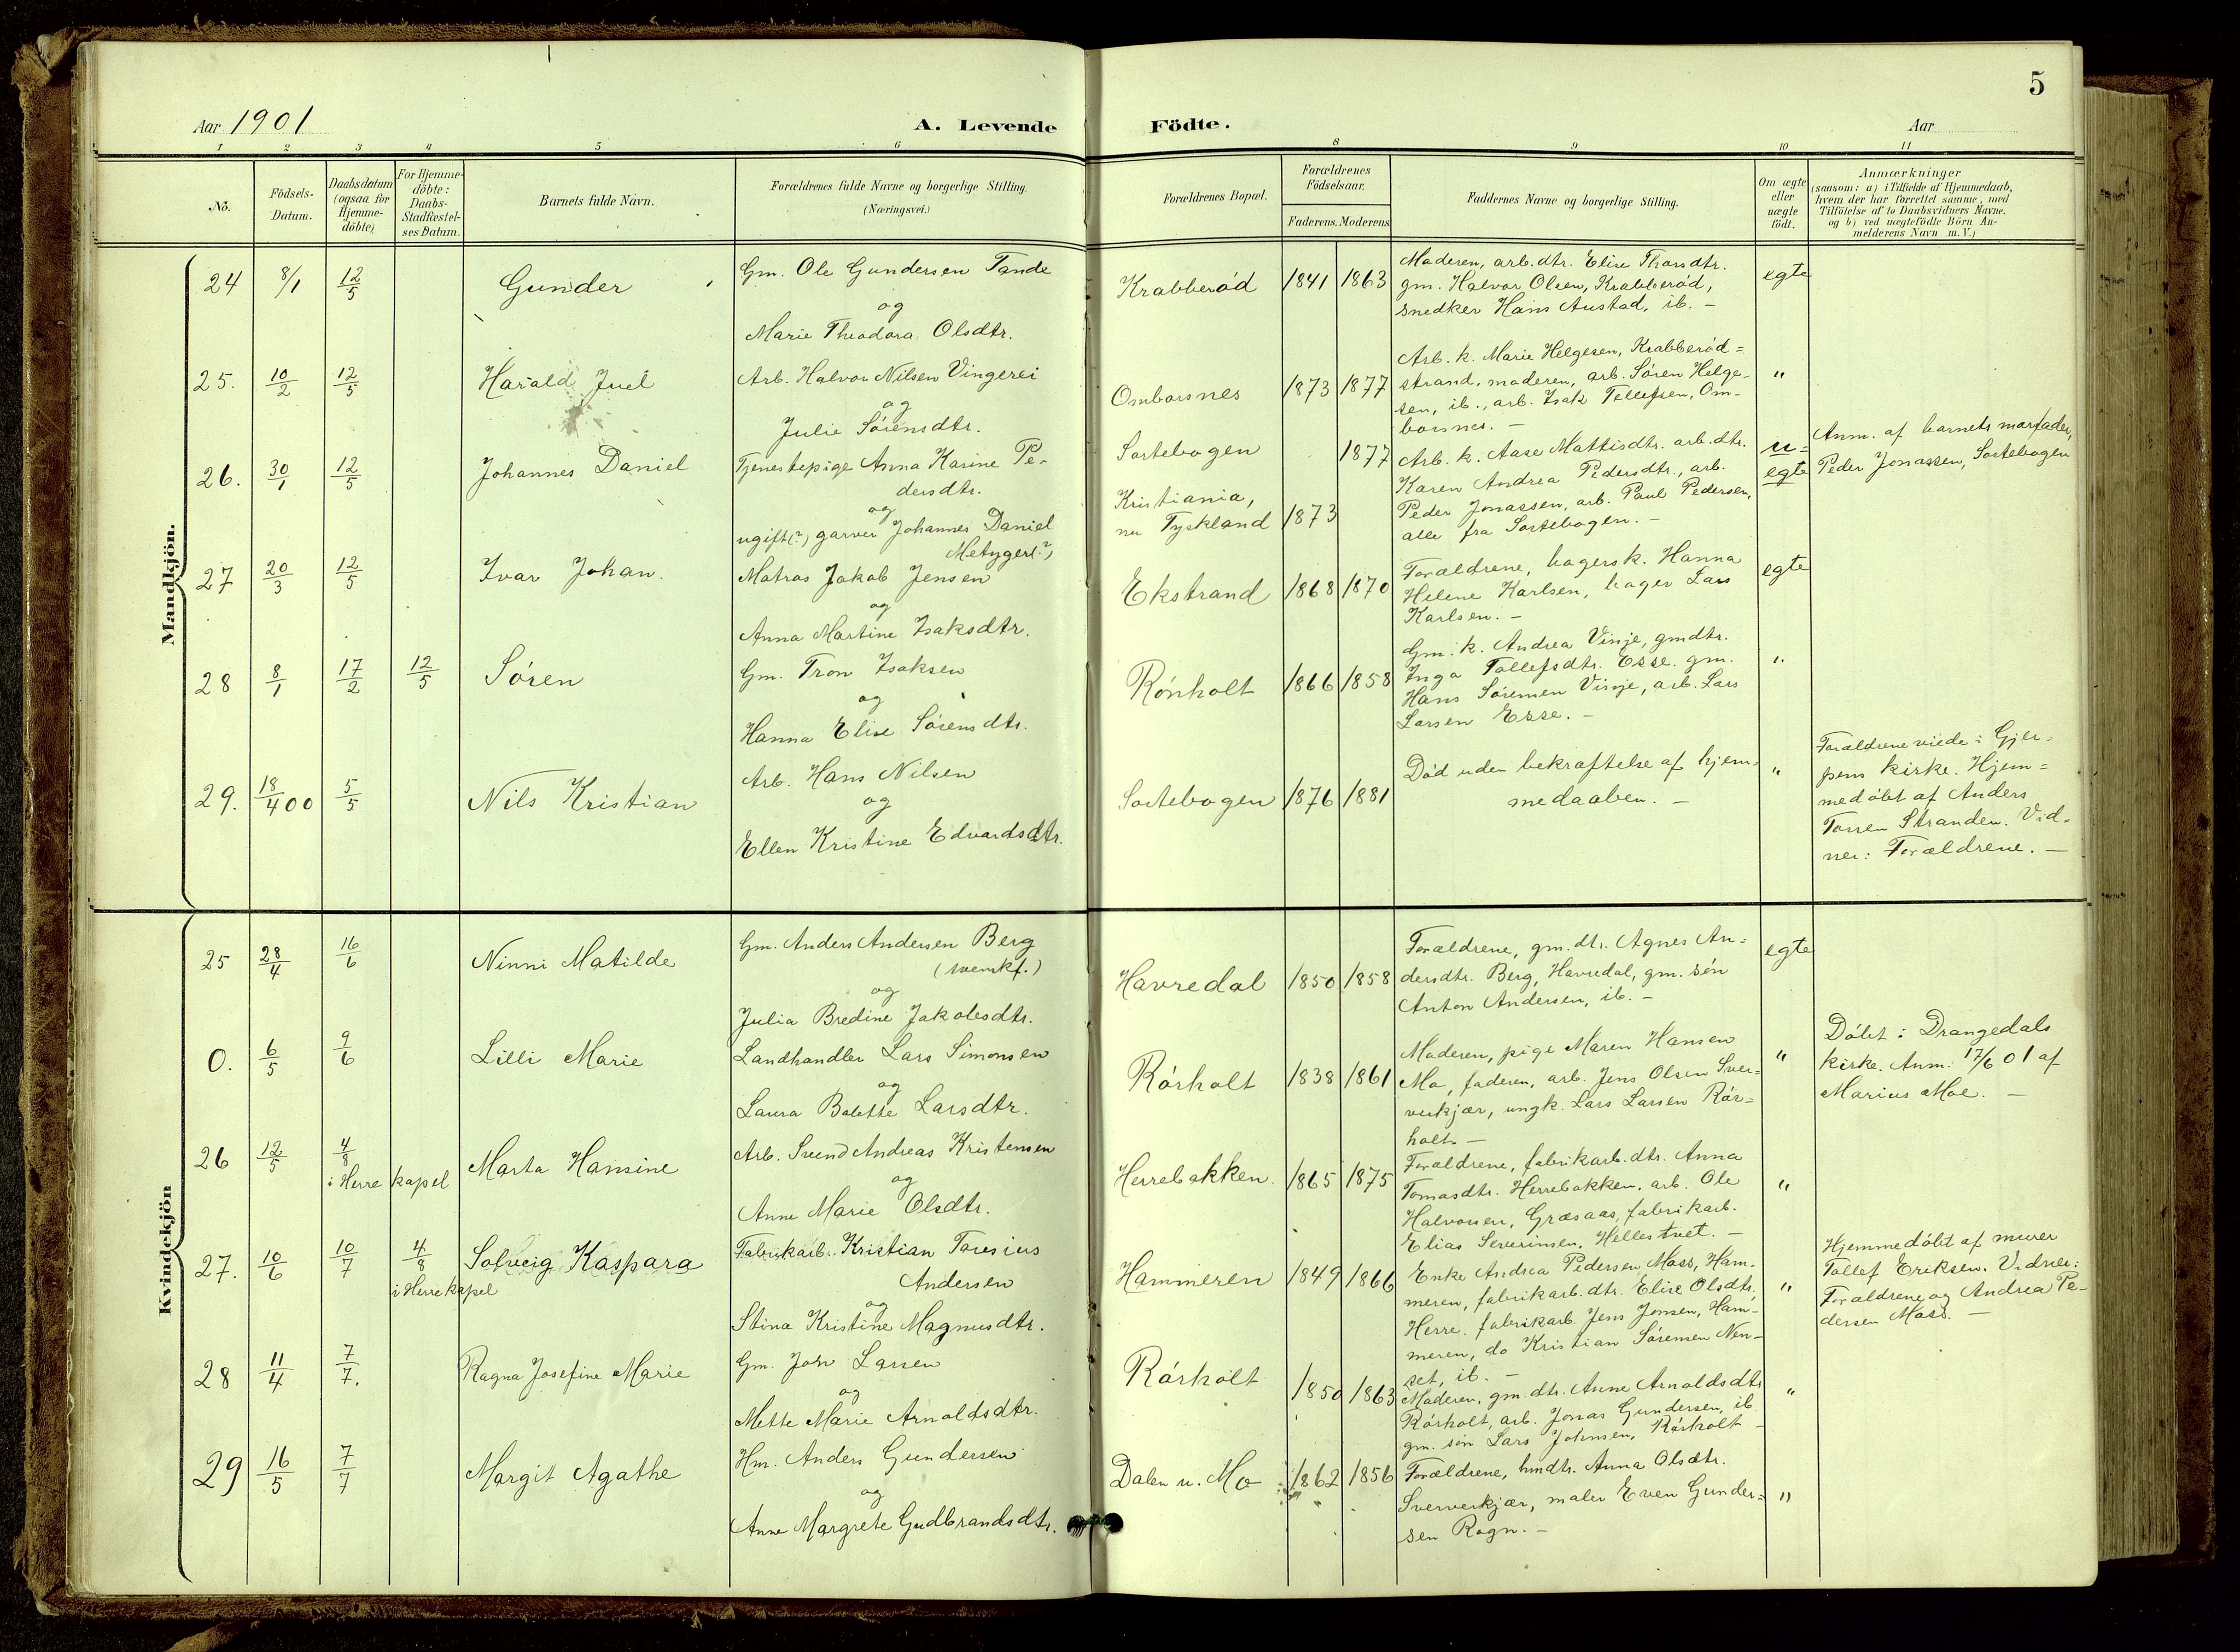 5
Aar 1901
A. Levende
Födte.
Aar
1
2
3
4
5
6
8
9
10
11
No.
Födsels-
Datum.
Daabsdatum
(ogsaa for
Hjemme-
döbte)
For Hjemme-
döbte:
Daabs-
Stadfæstel-
ses Datum.
Barnets fulde Navn.
Forældrenes fulde Navne og borgerlige Stilling.
(Næringsvei.)
Forældrenes Bopæl.
Forældrenes
Födselsaar.
Faderens. Moderens
Faddernes Navne og borgerlige Stilling.
Om ægte
eller
uægte
födt.
Anmærkninger
(saasom: a) i Tilfælde af Hjemmedaab,
hvem der har forrettet samme, med
Tilföielse af to Daabsvidners Navne,
og b) ved uægtefödte Börn An-
melderens Navn m. V.)
Mandkjön.
24
8/1
12/5
Gunder
Gm. Ole Gundersen Tande
og
Marie Theodora Olsdtr.
Krabberød
1841
1863
Moderen, arb.dtr. Elise Thorsdtr.
gm. Halvor Olsen, Krabberød,
snedker Hans Austad, ib. –
egte
25.
10/2
12/5
Harald Juel
Arb. Halvor Nilsen Vingerei
og
Julie Sörensdtr.
Omborsnes
1873
1877
Arb. k. Marie Helgesen, Krabberød=
strand, moderen, arb. Sören Helge-
sen, ib., arb. Isak Tellefsen, Om-
borsnes. –
"
26.
30/1
12/5
Johannes Daniel
Tjenestepige Anna Karine Pe-
dersdtr.
og
ugift(?) garver Johannes Daniel
Metyger(?)
Sortebogen
1877
Kristiania,
nu Tyskland
1873
Arb. k. Aase Mattisdtr. arb.dtr.
Karen Andrea Pedersdtr., arb.
Peder Jonassen, arb. Paul Pedersen,
alle fra Sortebogen. –
u=
egte
Anm. af barnets morfader,
Peder Jonassen, Sortebogen
27
20/3
12/5
Ivar Johan.
Matros Jakob Jensen
og
Anna Martine Isaksdtr.
Ekstrand
1868
1870
Forældrene, bagersk. Hanna
Helene Karlsen, bager Lars
Karlsen. –
egte
28
8/1
17/2
12/5
Sören
Gm. Tron Isaksen
og
Hanna Elise Sörensdtr.
Rönholt
1866
1858
Gm. k. Andrea Vinje, gmdtr.
Inga Tollefsdtr. Esse. gm.
Hans Sörensen Vinje, arb. Lars
Larsen Esse. –
"
29.
18/4 00
5/5
Nils Kristian
Arb. Hans Nilsen
og
Ellen Kristine Edvardsdtr.
Sortebogen
1876
1881
Död uden bekræftelse af hjem-
medaaben. –
"
Forældrene viede i Gjer-
pens kirke. Hjem=
medöbt af Anders
Torsen Stranden. Vid-
ner: Forældrene. –
Kvindekjön
25
28/4
16/6
Ninni Matilde
Gm. Anders Andersen Berg
(svenskf.)
og
Julia Bredine Jakobsdtr.
Havredal
1850
1858
Forældrene, gm. dtr. Agnes An=
dersdtr. Berg, Havredal, gm. sön
Anton Andersen, ib. –
egte
0.
6/5
9/6
Lilli Marie
Landhandler Lars Simonsen
og
Laura Bolette Larsdtr.
Rörholt
1838
1861
Moderen, pige Maren Hansen
Mo, faderen, arb. Jens Olsen Sver=
verkjær, ungk. Lars Larsen Rör=
holt. –
"
Döbt i Drangedals
kirke. Anm. 17/6 01 af
Marius Moe. –
26
12/5
4/8
i Herre kapel
Marta Hansine
Arb. Svend Andreas Kristensen
og
Anne Marie Olsdtr.
Herrebakken.
1865
1875
Forældrene, fabrikarb.dtr. Anna
Tomasdtr. Herrebakken, arb. Ole
Halvorsen, Græsaas, fabrikarb.
Elias Severinsen, Hellestvet. –
"
27.
10/6
10/7
4/8
i Herre kapel
Solveig Kaspara
Fabrikarb. Kristian Toresius
Andersen
og
Stina Kristine Magnusdtr.
Hammeren
1849
1866
Enke Andrea Pedersen Moss, Ham-
meren, fabrikarb.dtr. Elise Olsdtr.
Herre. fabrikarb. Jens Jensen, Ham-
meren, do Kristian Sörensen Nen-
set, ib. –
"
Hjemmedöbt af murer
Tollef Eriksen. Vidner:
Forældrene og Andrea Pe-
dersen Moss. –
28
11/4
7/7.
Ragna Josefine Marie
Gm. John Larsen
og
Mette Marie Arnoldsdtr.
Rörholt
1850
1863
Moderen, gm. dtr. Anne Arnoldsdtr
Rörholt, arb. Jonas Gundersen, ib
gm. sön Lars Johnsen, Rörholt –
"
29
16/5
7/7
Margit Agathe
Hm. Anders Gundersen
og
Anne Margrete Gudbrandsdtr.
Dalen u. Mo
1862
1856
Forældrene, hmdtr. Anna Olsdtr.
Sververkjær, maler Even Gunder=
sen Rogn. –
"